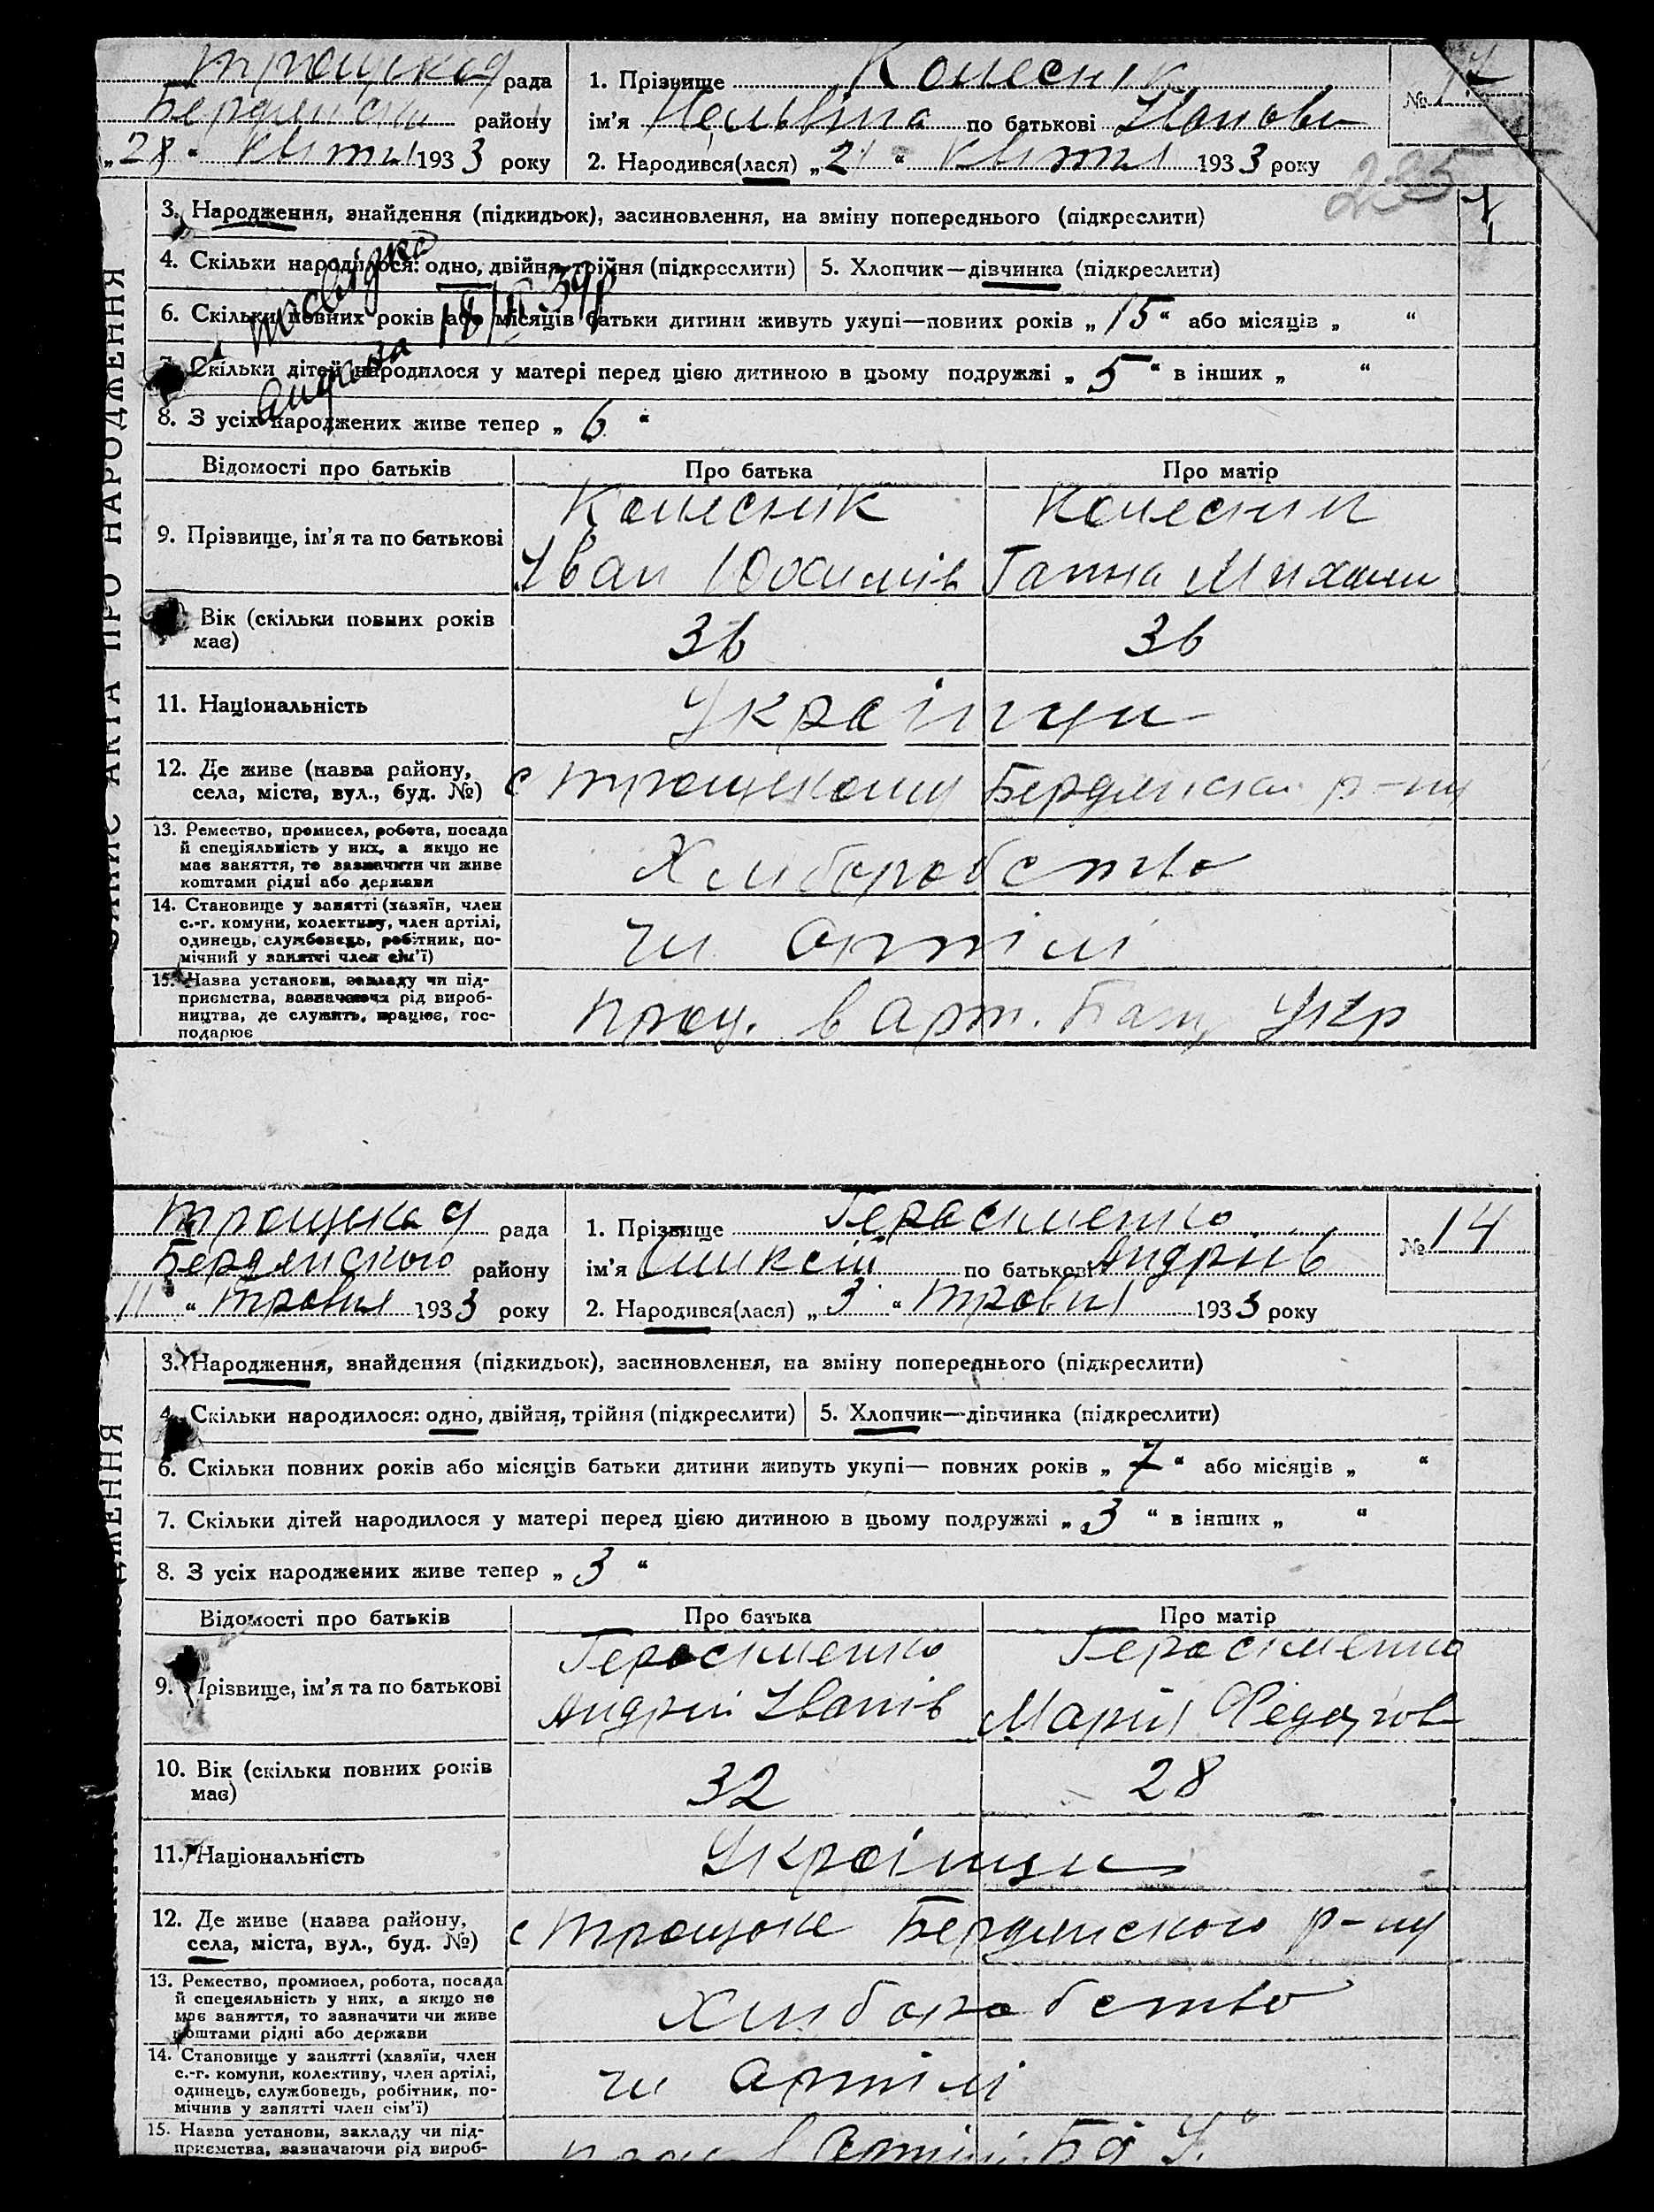 Троцкая рада
Бердянськ району
„28“ квітня 1933 року
1. Прізвище Колеснік
№
ім'я по батькові Іванови
2. Народився(лася) „21“ квітня 1933 року
235
3. Народження, знайдення (підкидьок), засиновлення, на зміну попереднього (підкреслити)
4. Скільки народилося: одно, двійня, трійня (підкреслити)
5. Хлопчик—дівчинка (підкреслити)
6. Скільки повних років або місяців батьки дитини живуть укупі—повних років „15“ або місяців „ “
7. Скільки дітей народилося у матері перед цією дитиною в цьому подружжі „5“ в інших „ “
8. З усіх народжених живе тепер „6“
Відомості про батьків Про батька Про матір
9. Прізвище, ім'я та по батькові
Колеснік Колесник
Іван Юхимів Ганна Михайл
Вік (скільки повних років
має)
36 36
11. Національність Українци
12. Де живе (назва району,
села, міста, вул., буд. №)
с Бердянськ р-ну
13. Ремество, промисел, робота, посада
й спеціяльність у них, а якщо не
має заняття, то зазначити чи живе
коштами рідні або держави
Хліборобство
14. Становище у занятті (хазяїн, член
с.-г. комуни, колективу, член артілі,
одинець, службовець, робітник, по-
мічний у занятті член сім'ї)
чл артілі
15. Назва установи, закладу чи під-
приємства, зазначаючи рід вироб-
ництва, де служить, працює, гос-
подарює
прац. в арт. Укр
ЗАПИС АКТА ПРО НАРОДЖЕННЯ
Троцка я рада
Бердянського району
„11“ травня 1933 року
1. Прізвище Герасименко
№ 14
ім'я по батькові Андріїв
2. Народився(лася) „3“ травня 1933 року
3. Народження, знайдення (підкидьок), засиновлення, на зміну попереднього (підкреслити)
4. Скільки народилося: одно, двійня, трійня (підкреслити)
5. Хлопчик—дівчинка (підкреслити)
6. Скільки повних років або місяців батьки дитини живуть укупі— повних років „7“ або місяців „ “
7. Скільки дітей народилося у матері перед цією дитиною в цьому подружжі „3“ в інших „ “
8. З усіх народжених живе тепер „3“
Відомості про батьків Про батька Про матір
9. Прізвище, ім'я та по батькові
Герасименко Герасименко
Андрій Іванів Марія Федотов
10. Вік (скільки повних років
має)
32 28
11. Національність Українци
12. Де живе (назва району,
села, міста, вул., буд. №)
с Троцьке Бердянського р-ну
13. Ремество, промисел, робота, посада
й спецеяльність у них, а якщо не
має заняття, то зазначити чи живе
коштами рідні або держави
Хліборобство
14. Становище у занятті (хазяїн, член
с.-г. комуни, колективу, член артілі,
одинець, службовець, робітник, по-
мічнив у занятті член сім'ї)
чл артілі
15. Назва установи, закладу чи під-
приємства, зазначаючи рід вироб-